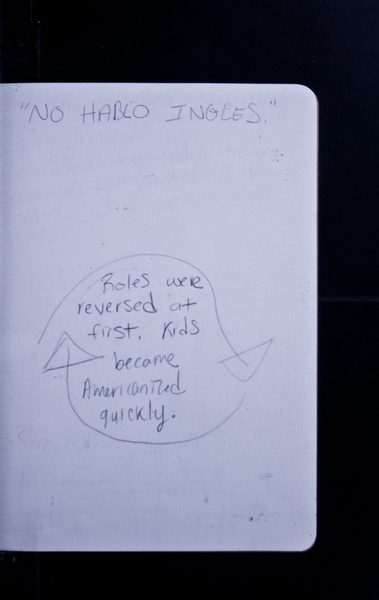 "NO HABLO INGLES."
Roles were
reversed at
first. Kids
become
Americanized
quickly.